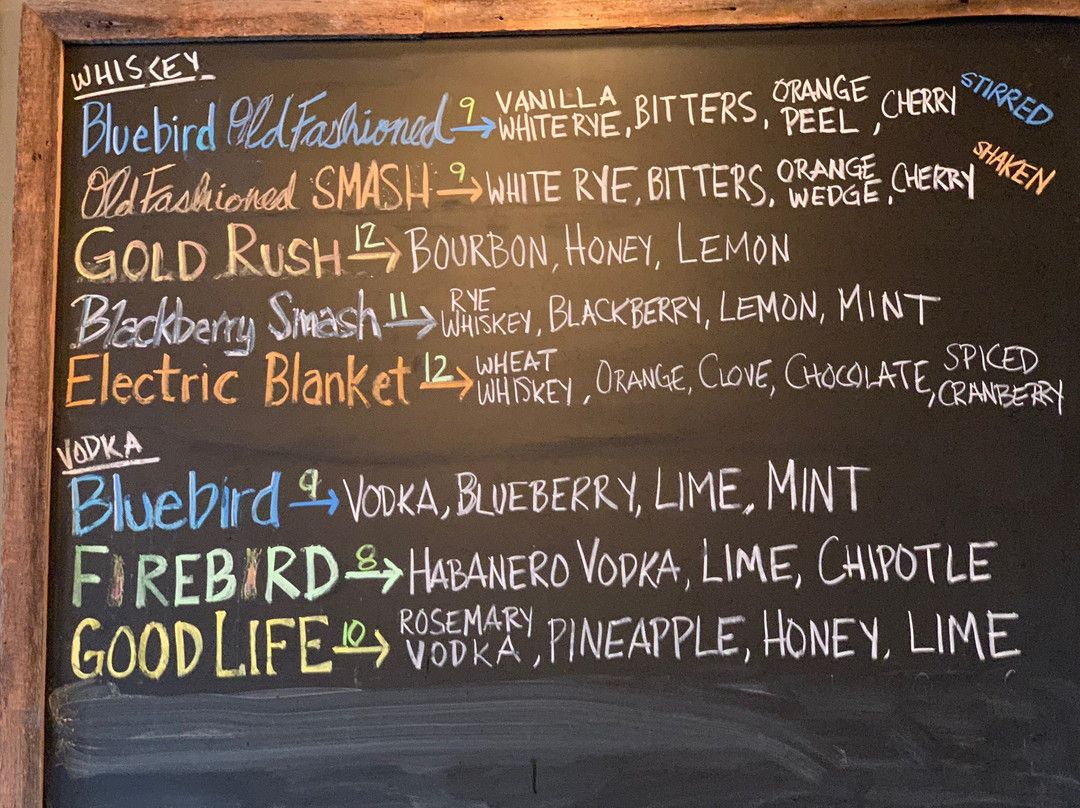 WHISKEY
Bluebird Old Fashioned 9 → VANILLA WHITE RYE, BITTERS, ORANGE PEEL, CHERRY STIRRED
Old Fashioned SMASH 9 → WHITE RYE, BITTERS, ORANGE WEDGE, CHERRY SHAKEN
GOLD RUSH 12 → BOURBON, HONEY, LEMON
Blackberry Smash 11 → RYE WHISKEY, BLACKBERRY, LEMON, MINT
Electric Blanket 12 → WHEAT WHISKEY, ORANGE, CLOVE, CHOCOLATE, SPICED CRANBERRY
VODKA
Bluebird 9 → VODKA, BLUEBERRY, LIME, MINT
FIREBIRD 8 → HABANERO VODKA, LIME, CHIPOTLE
GOOD LIFE 10 → ROSEMARY VODKA, PINEAPPLE, HONEY, LIME